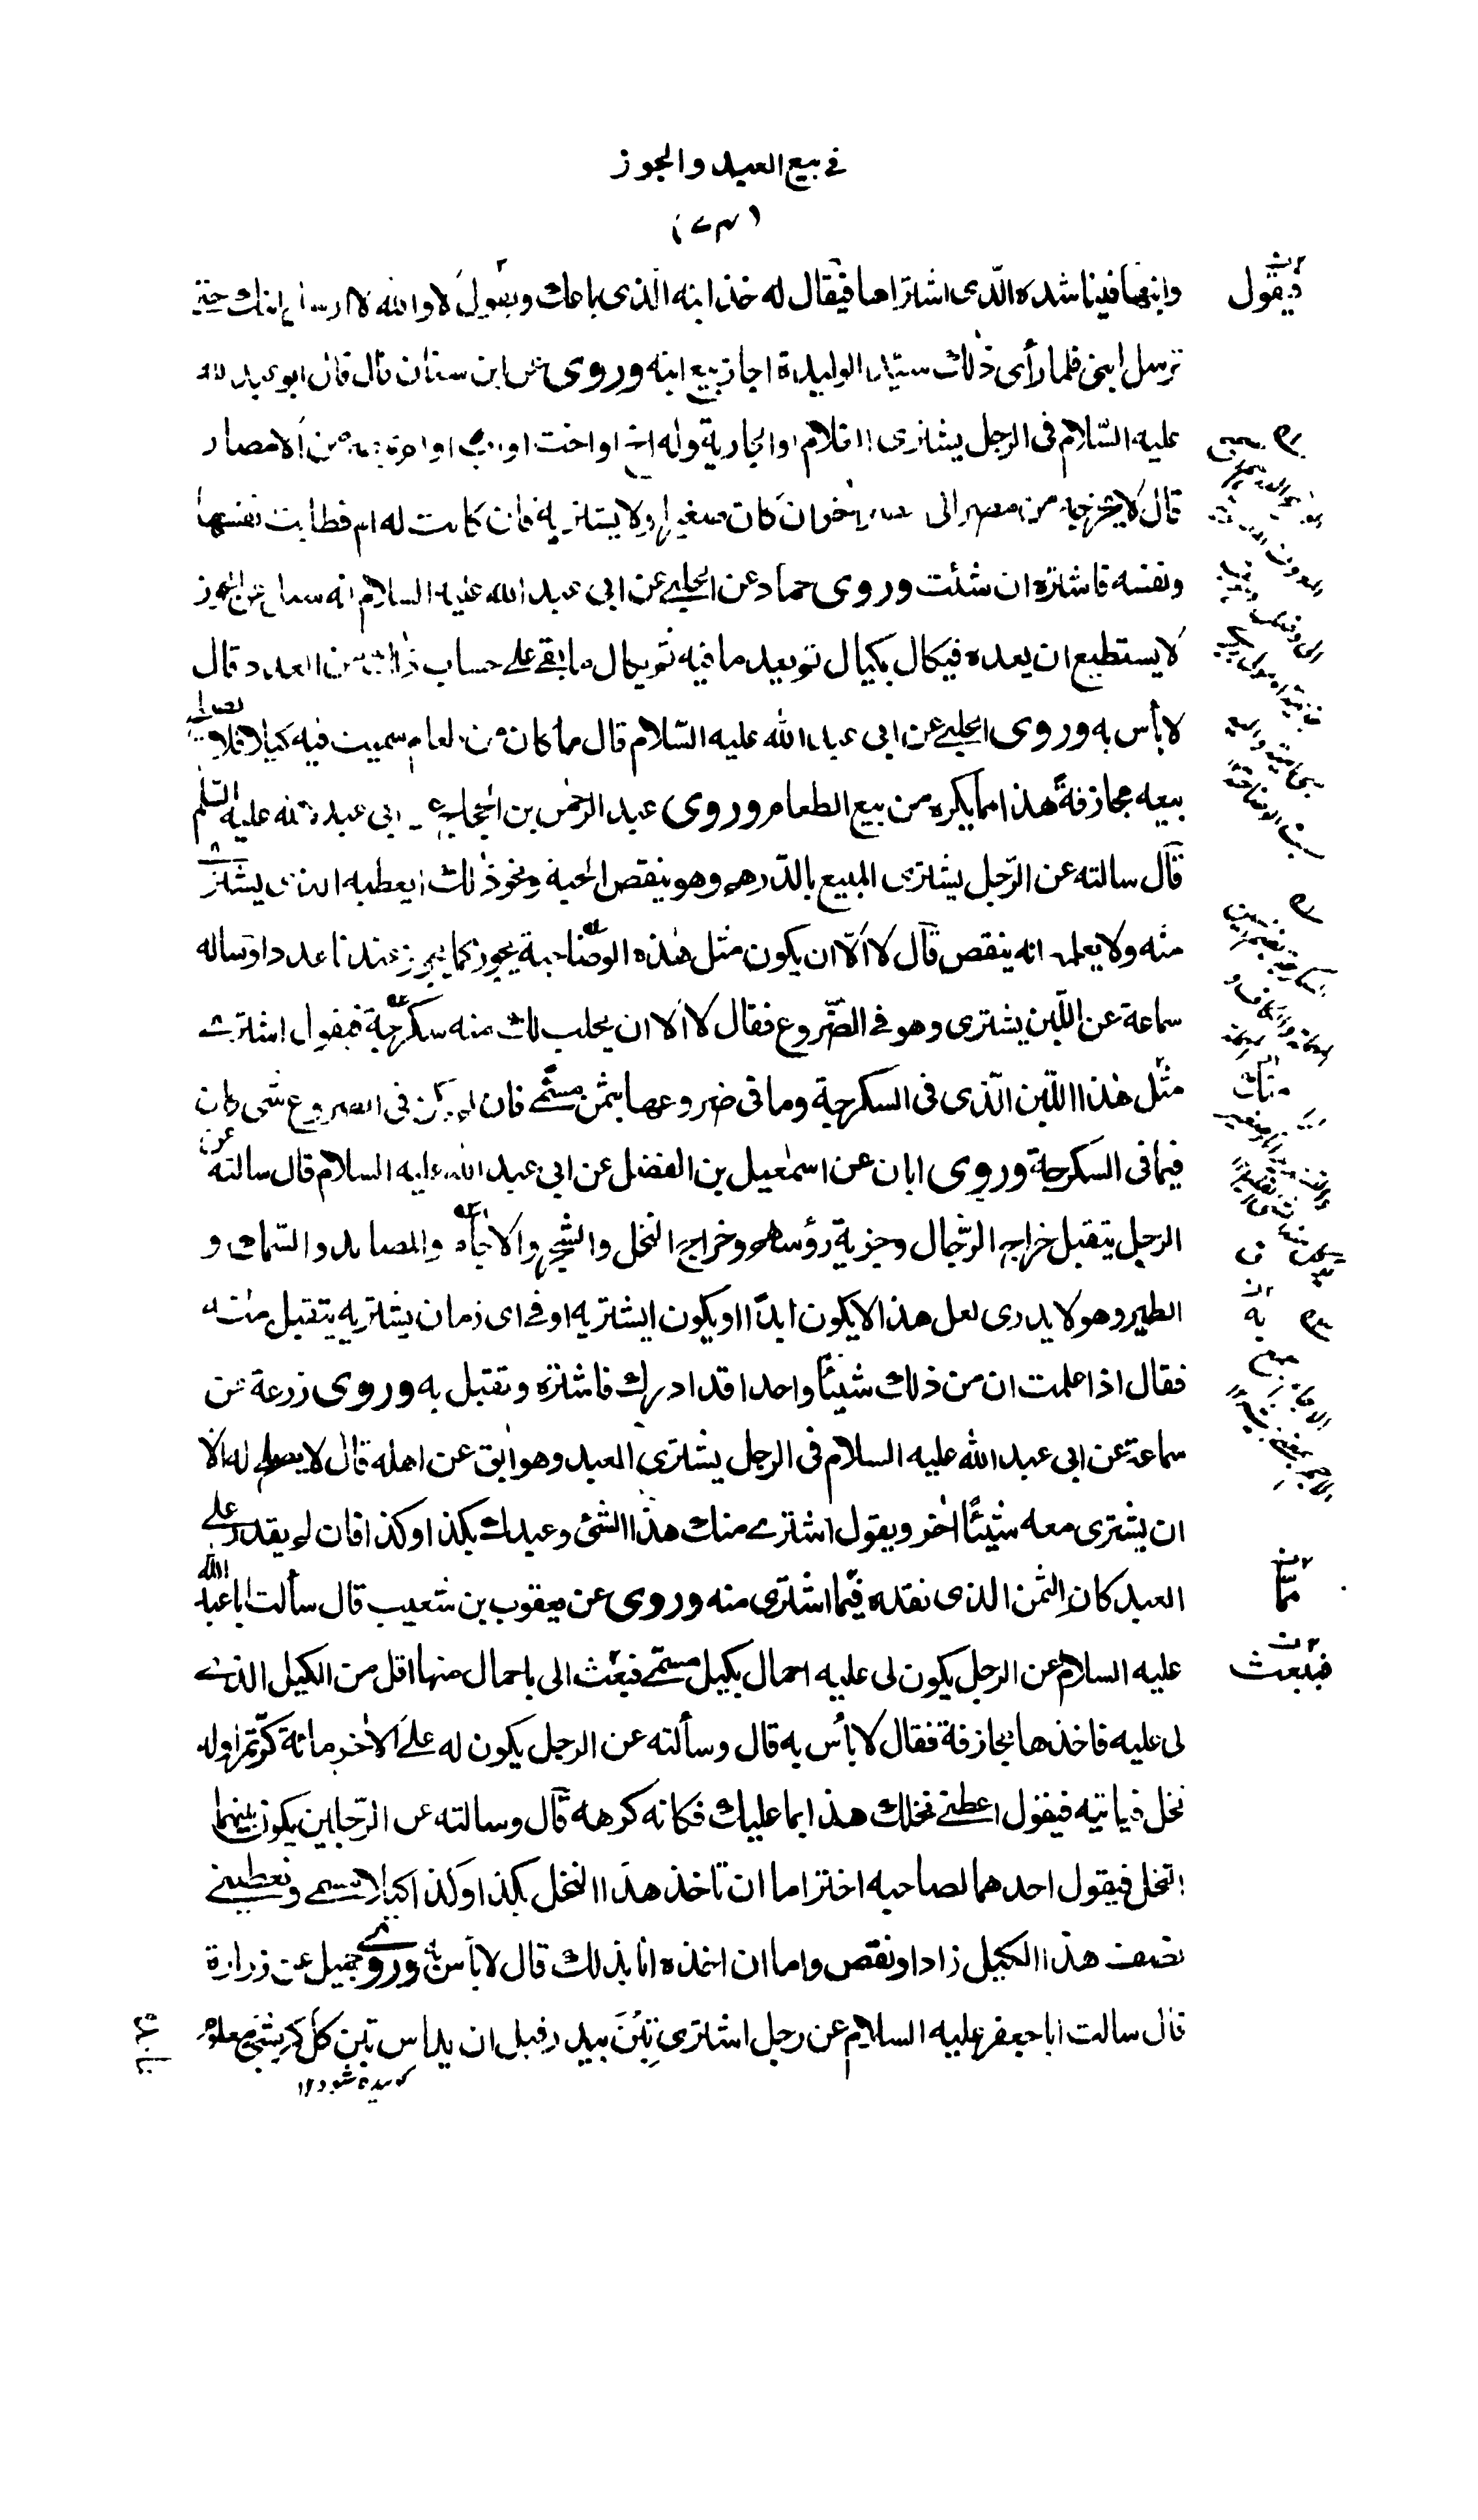 في بيع العبيد والجوز
(٧٣)
وابنها فيناشده الّذى اشتراها فيقال له خذ ابنه الذى باعك ويقول لا والله لا ارسل ابنك حتى
ترسل ابنى فلما رأى ذلك سيد الوليدة اجاز بيع ابنه وروى عن ابن سنان قال قال ابو عبد الله
عليه السّلام فى الرجل يشترى الغلام او الجارية وله اخ او اخت او اب او ام بمصر من الامصار
قال لا يخرجه من مصر الى مصر اخر ان كان صغيرا ولا يشتريه فان كانت له ام فطابت نفسها
ونفسه فاشتره ان شئت وروى حماد عن الحلبي عن ابى عبد الله عليه السلام انه سئل عن الجوز
لا يستطيع ان يعده فيكال بمكيال ثم يعد ما فيه ثم يكال ما بقى على حساب ذلك من العدد قال
لا بأس به وروى الحلبي عن ابى عبد الله عليه السّلام قال ما كان من طعام سميت فيه كيلا فلا يصلح
بيعه مجازفة هذا مما يكره من بيع الطعام وروى عبد الرحمن بن الحجاج عن ابى عبد الله عليه السّلم
قال سالته عن الرّجل يشترى المبيع بالدّرهم وهو ينقص الحبة ونحو ذلك ايعطيه الذى يشترى
منه ولا يعلمه انه ينقص قال لا الّا ان يكون مثل هذه الوضّاحية يجوز كما يجوز عندنا عددا وساله
سماعة عن اللّبن يشترى وهو فى الضّروع فقال لا الا ان يحلب لك منه سكرّجة فيقول اشترى
مثل هذا اللّبن الّذى فى السكرجة وما فى ضروعها بثمن مسمّى فان لم يكن فى الضروع شى كان
فيما فى السكرجة وروى ابان عن اسمعيل بن الفضل عن ابى عبد الله عليه السلام قال سالته عن
الرجل يتقبل خراج الرّجال وجزية رؤسهم وخراج النخل والشجر والاجام والمصايد والسّمك و
الطير وهو لا يدرى لعل هذا لا يكون ابدًا او يكون ايشتريه او فى اى زمان يشتريه يتقبل منه
فقال اذا علمت ان من ذلك شيئًا واحدا قد ادرك فاشتره وتقبل به وروى زرعة عن
سماعة عن ابى عبد الله عليه السلام فى الرجل يشترى العبد وهو ابق عن اهله قال لا يصلح له الا
ان يشترى معه شيئًا اخر ويقول اشترى منك هذا الشئ وعبدك بكذا وكذا فان لم يقدر على
العبد كان الثمن الذى نقده فيما اشترى منه وروى عن يعقوب بن شعيب قال سألت ابا عبد الله
عليه السلام عن الرجل يكون لى عليه احمال بكيل مسمّى فبعث الى باحمال منها اقل من الكيل الذى
لى عليه فاخذها مجازفة فقال لا بأس به قال وسألته عن الرجل يكون له على الاخر مائة كرّ تمر وله
نخل فياتيه فيقول اعطنى نخلك هذا بما عليك فكانه كرهه قال وسالته عن الرّجلين يكون بينهما
النخل فيقول احدهما لصاحبه اختر اما ان تاخذ هذا النخل بكذا وكذا كيلا مسمى وتعطينى
نصف هذا الكيل زاد او نقص واما ان اخذه انا بذلك قال لا بأس به وروى جميل عن زرارة
قال سالت ابا جعفر عليه السلام عن رجل اشترى تبن بيدر قبل ان يداس تبن كل كر بشئ معلوم
فيقول
منك
به
ممّا
فيبعث
كوبيده شود ١٢